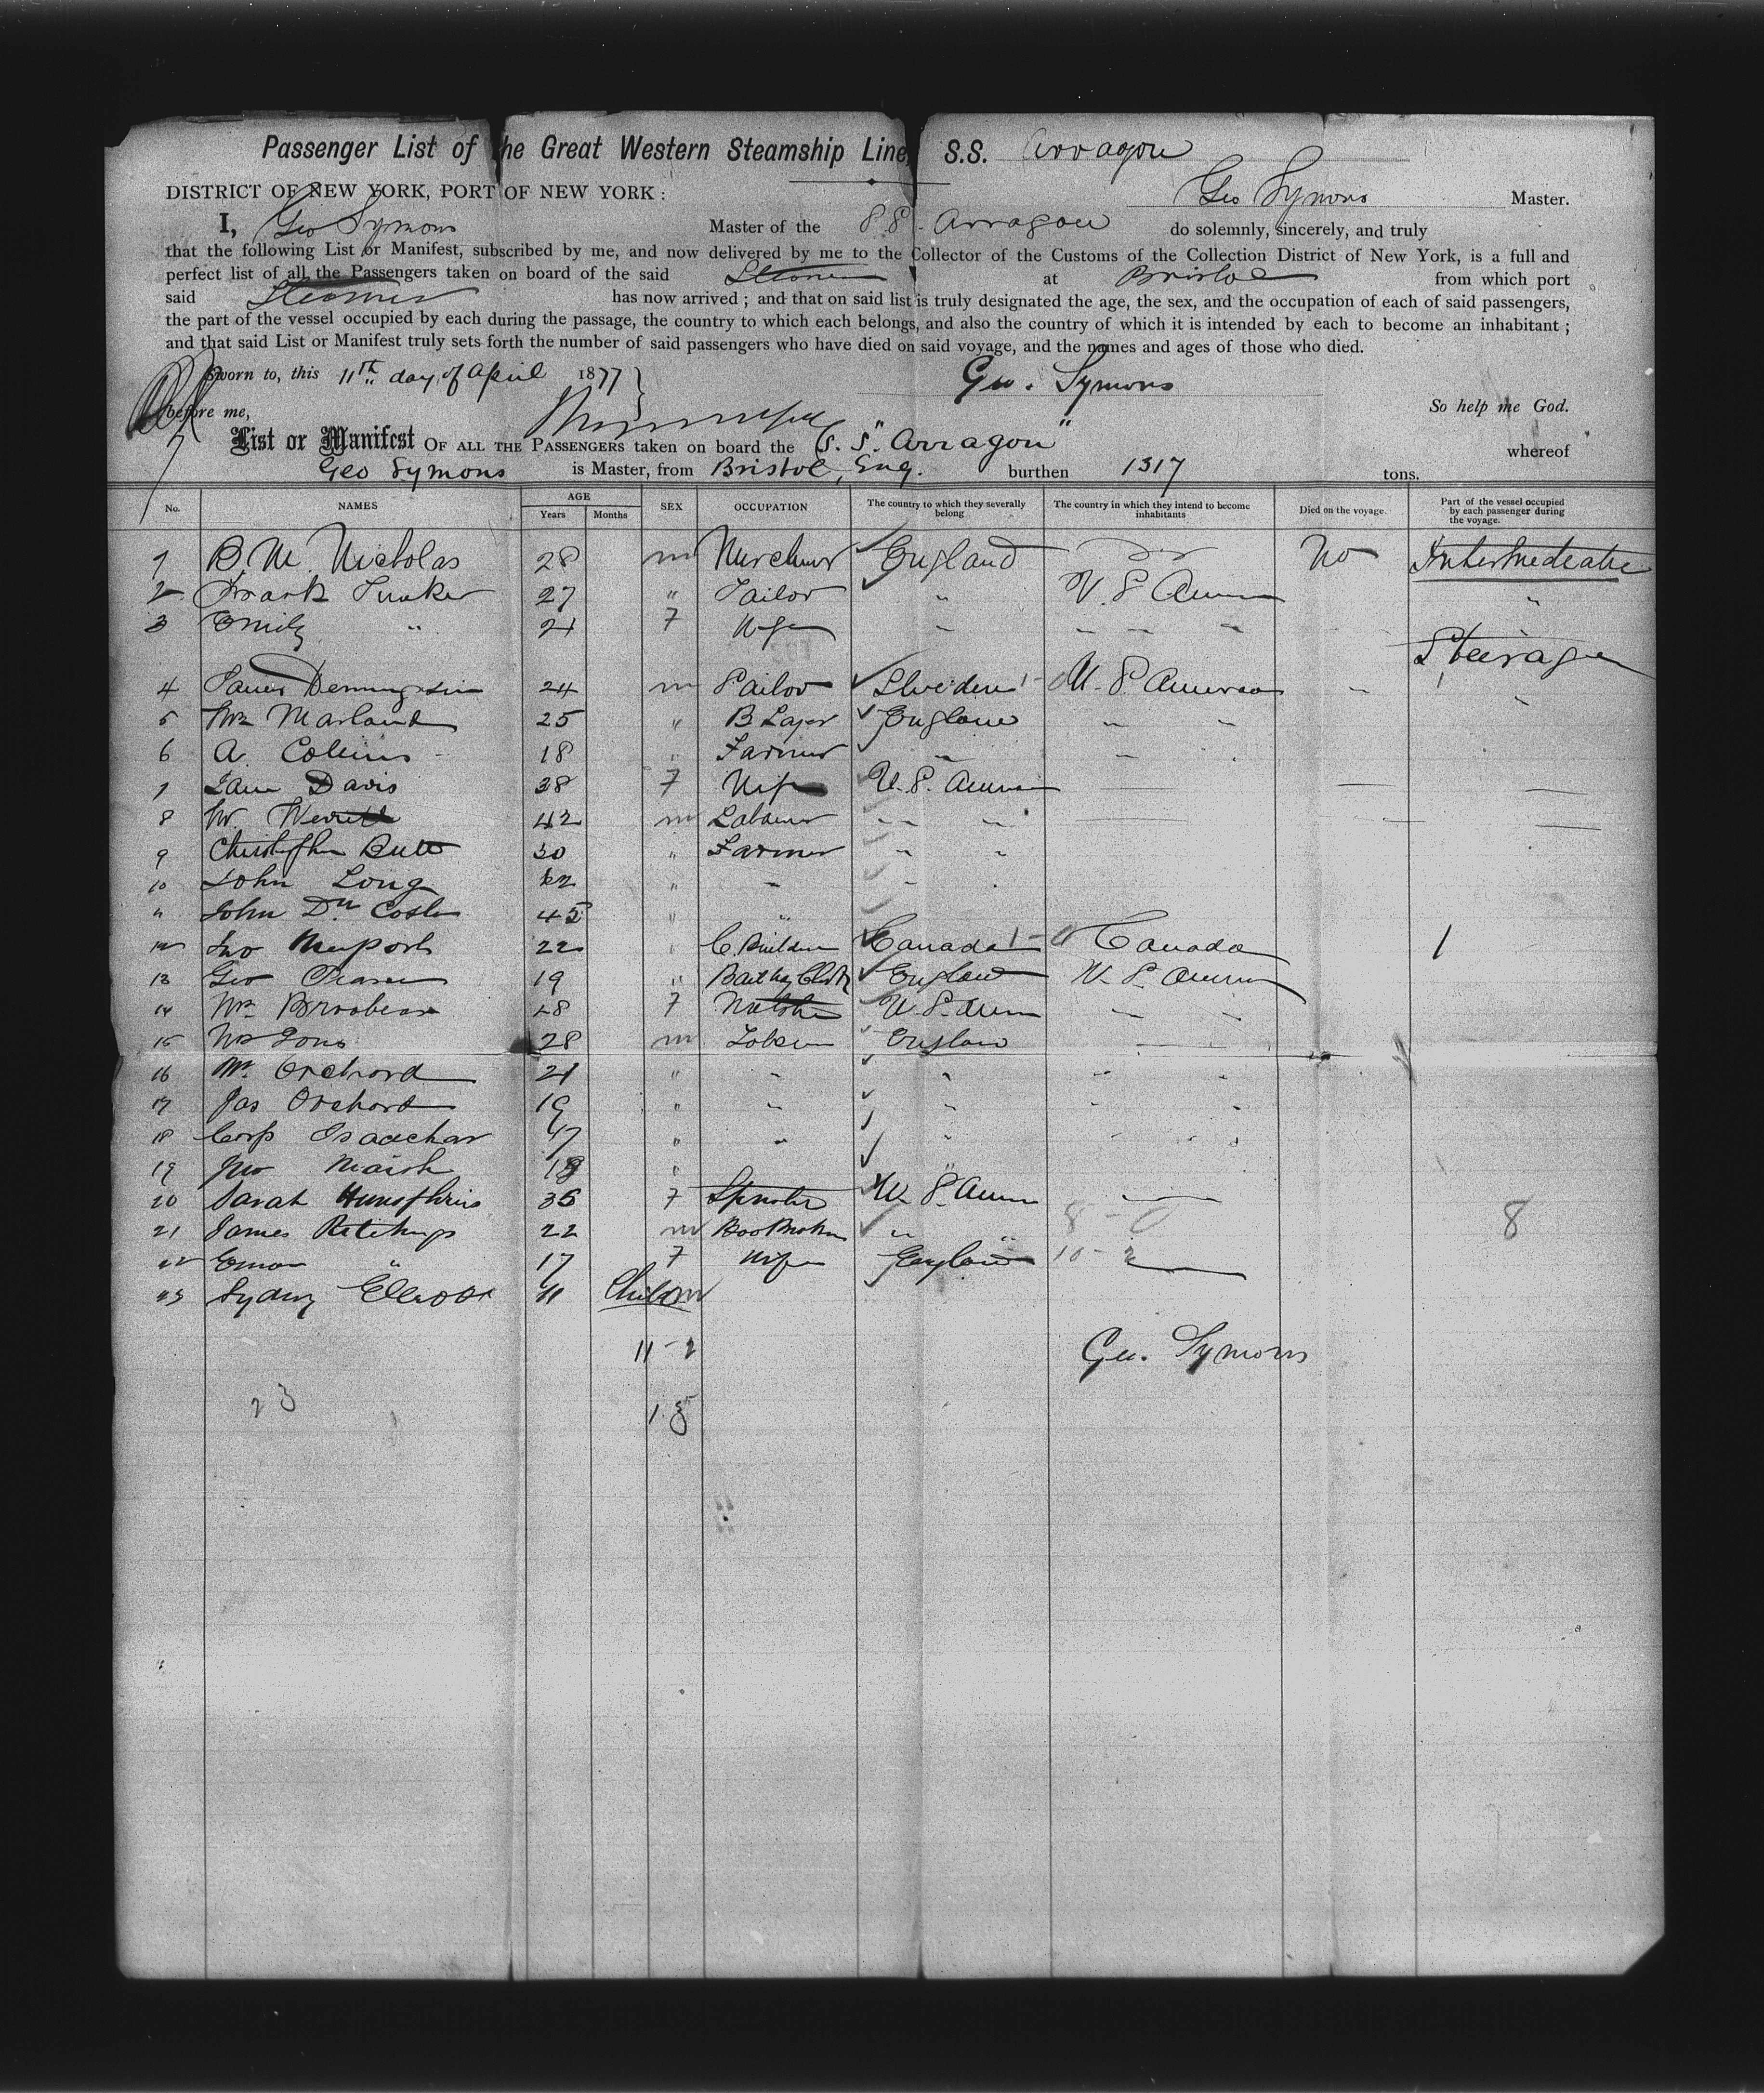 Passenger List of the Great Western Steamship Line, S.S. Arragon
DISTRICT OF NEW YORK, PORT OF NEW YORK : Geo Symons Master.
I, Geo Symons Master of the S.S. Arragon do solemnly, sincerely, and truly
that the following List or Manifest, subscribed by me, and now delivered by me to the Collector of the Customs of the Collection District of New York, is a full and
perfect list of all the Passengers taken on board of the said Steamer at Bristol from which port
said Steamer has now arrived ; and that on said list is truly designated the age, the sex, and the occupation of each of said passengers,
the part of the vessel occupied by each during the passage, the country to which each belongs, and also the country of which it is intended by each to become an inhabitant ;
and that said List or Manifest truly sets forth the number of said passengers who have died on said voyage, and the names and ages of those who died.
Sworn to, this 11th day of April 1877 Geo. Symons
before me, So help me God.
List or Manifest OF ALL THE PASSENGERS taken on board the S.S. "Arragon" whereof
Geo Symons is Master, from Bristol, Eng. burthen 1317 tons.
No. NAMES AGE Years Months SEX OCCUPATION The country to which they severally belong The country in which they intend to become inhabitants Died on the voyage. Part of the vessel occupied by each passenger during the voyage.
1 B. M. Nicholas 28 m England No Intermediate
2 Frank Tucker 27 " Tailor " U. S. Amer "
3 Emily " 21 F Wife " " " "
Steerage
4 24 m Sailor Sweden U. S. America " "
5 Wm Marland 25 " B Layer England " "
6 A. Collins 18 " Farmer " "
7 Jane Davis 38 F Wife U. S. America
8 W. 42 m Labourer " "
9 Christopher Butt 30 " Farmer " "
10 John Long 62 " " " "
11 John 45 " "
12 Jno Newport 22 " C. Builder Canada 1 - 0 Canada 1
13 Geo 19 " England U. S. Amer
14 48 F U. S. Amer " "
15 28 m Labour England
16 Wm Orchard 21 " " " " "
17 Jas Orchard 19 " " " " "
18 Isaachar 47 " " " " "
19 Jno Marsh 18 "
20 Sarah Humphries 36 F Spinster U. S. Amer
21 James 22 m " " 8 - 0 8
22 Emma " 17 F Wife England 10 - 2
23 Sydney Elliott 11 Child m
11 - 2 Geo. Symons
23